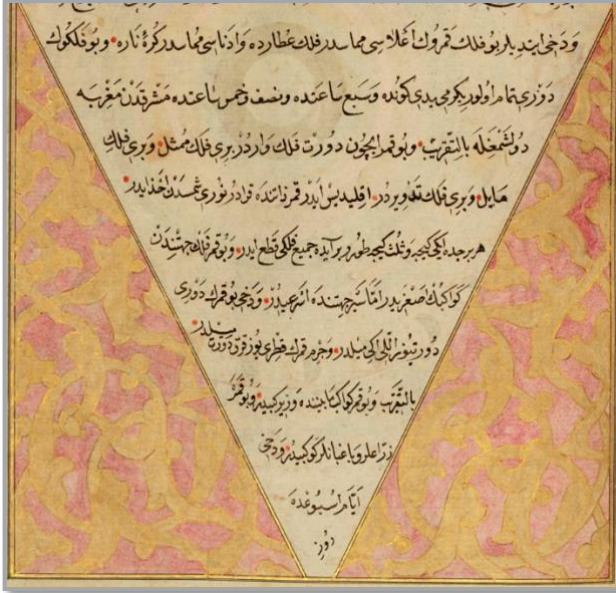 ودخی ایتدیلر بو فلك قمروك اعلاسی مماسدر فلك عطارده وادناسی مماسدر كرۀ ناره وبو فلكوك
دوری تمام اولور یكرمی یدی كونده وسبع ساعتده ونصف وخمس ساعتده مشرقدن مغربه
دولشمغله بالتقریب وبو قمر ایچون دورت فلك واردر بری فلك ممثل وبری فلك
مایل وبری فلك تدویردر اقلیدس ایدر قمر ذاتنده قرادر نوری شمسدن اخذ ایدر
هر برجده ایكی كیجه وثلث كیجه طورر وبر آیده جمیع فلكی قطع ایدر وبو قمر فلك جهتندن
كواكبك اصغریدر اما سیر جهتنده اسرعیدر ودخی بو قمرك دوری
دورتیوز اللی ایكی میلدر وجرم قمرك قطری یوز قرق دورت میلدر
بالتقریب وبو قمر كواكب مابیننده وزیر كبیدر وبو قمر
زراعلر وباغبانلر كوكبیدر ودخی
ایام اسبوعده
روز